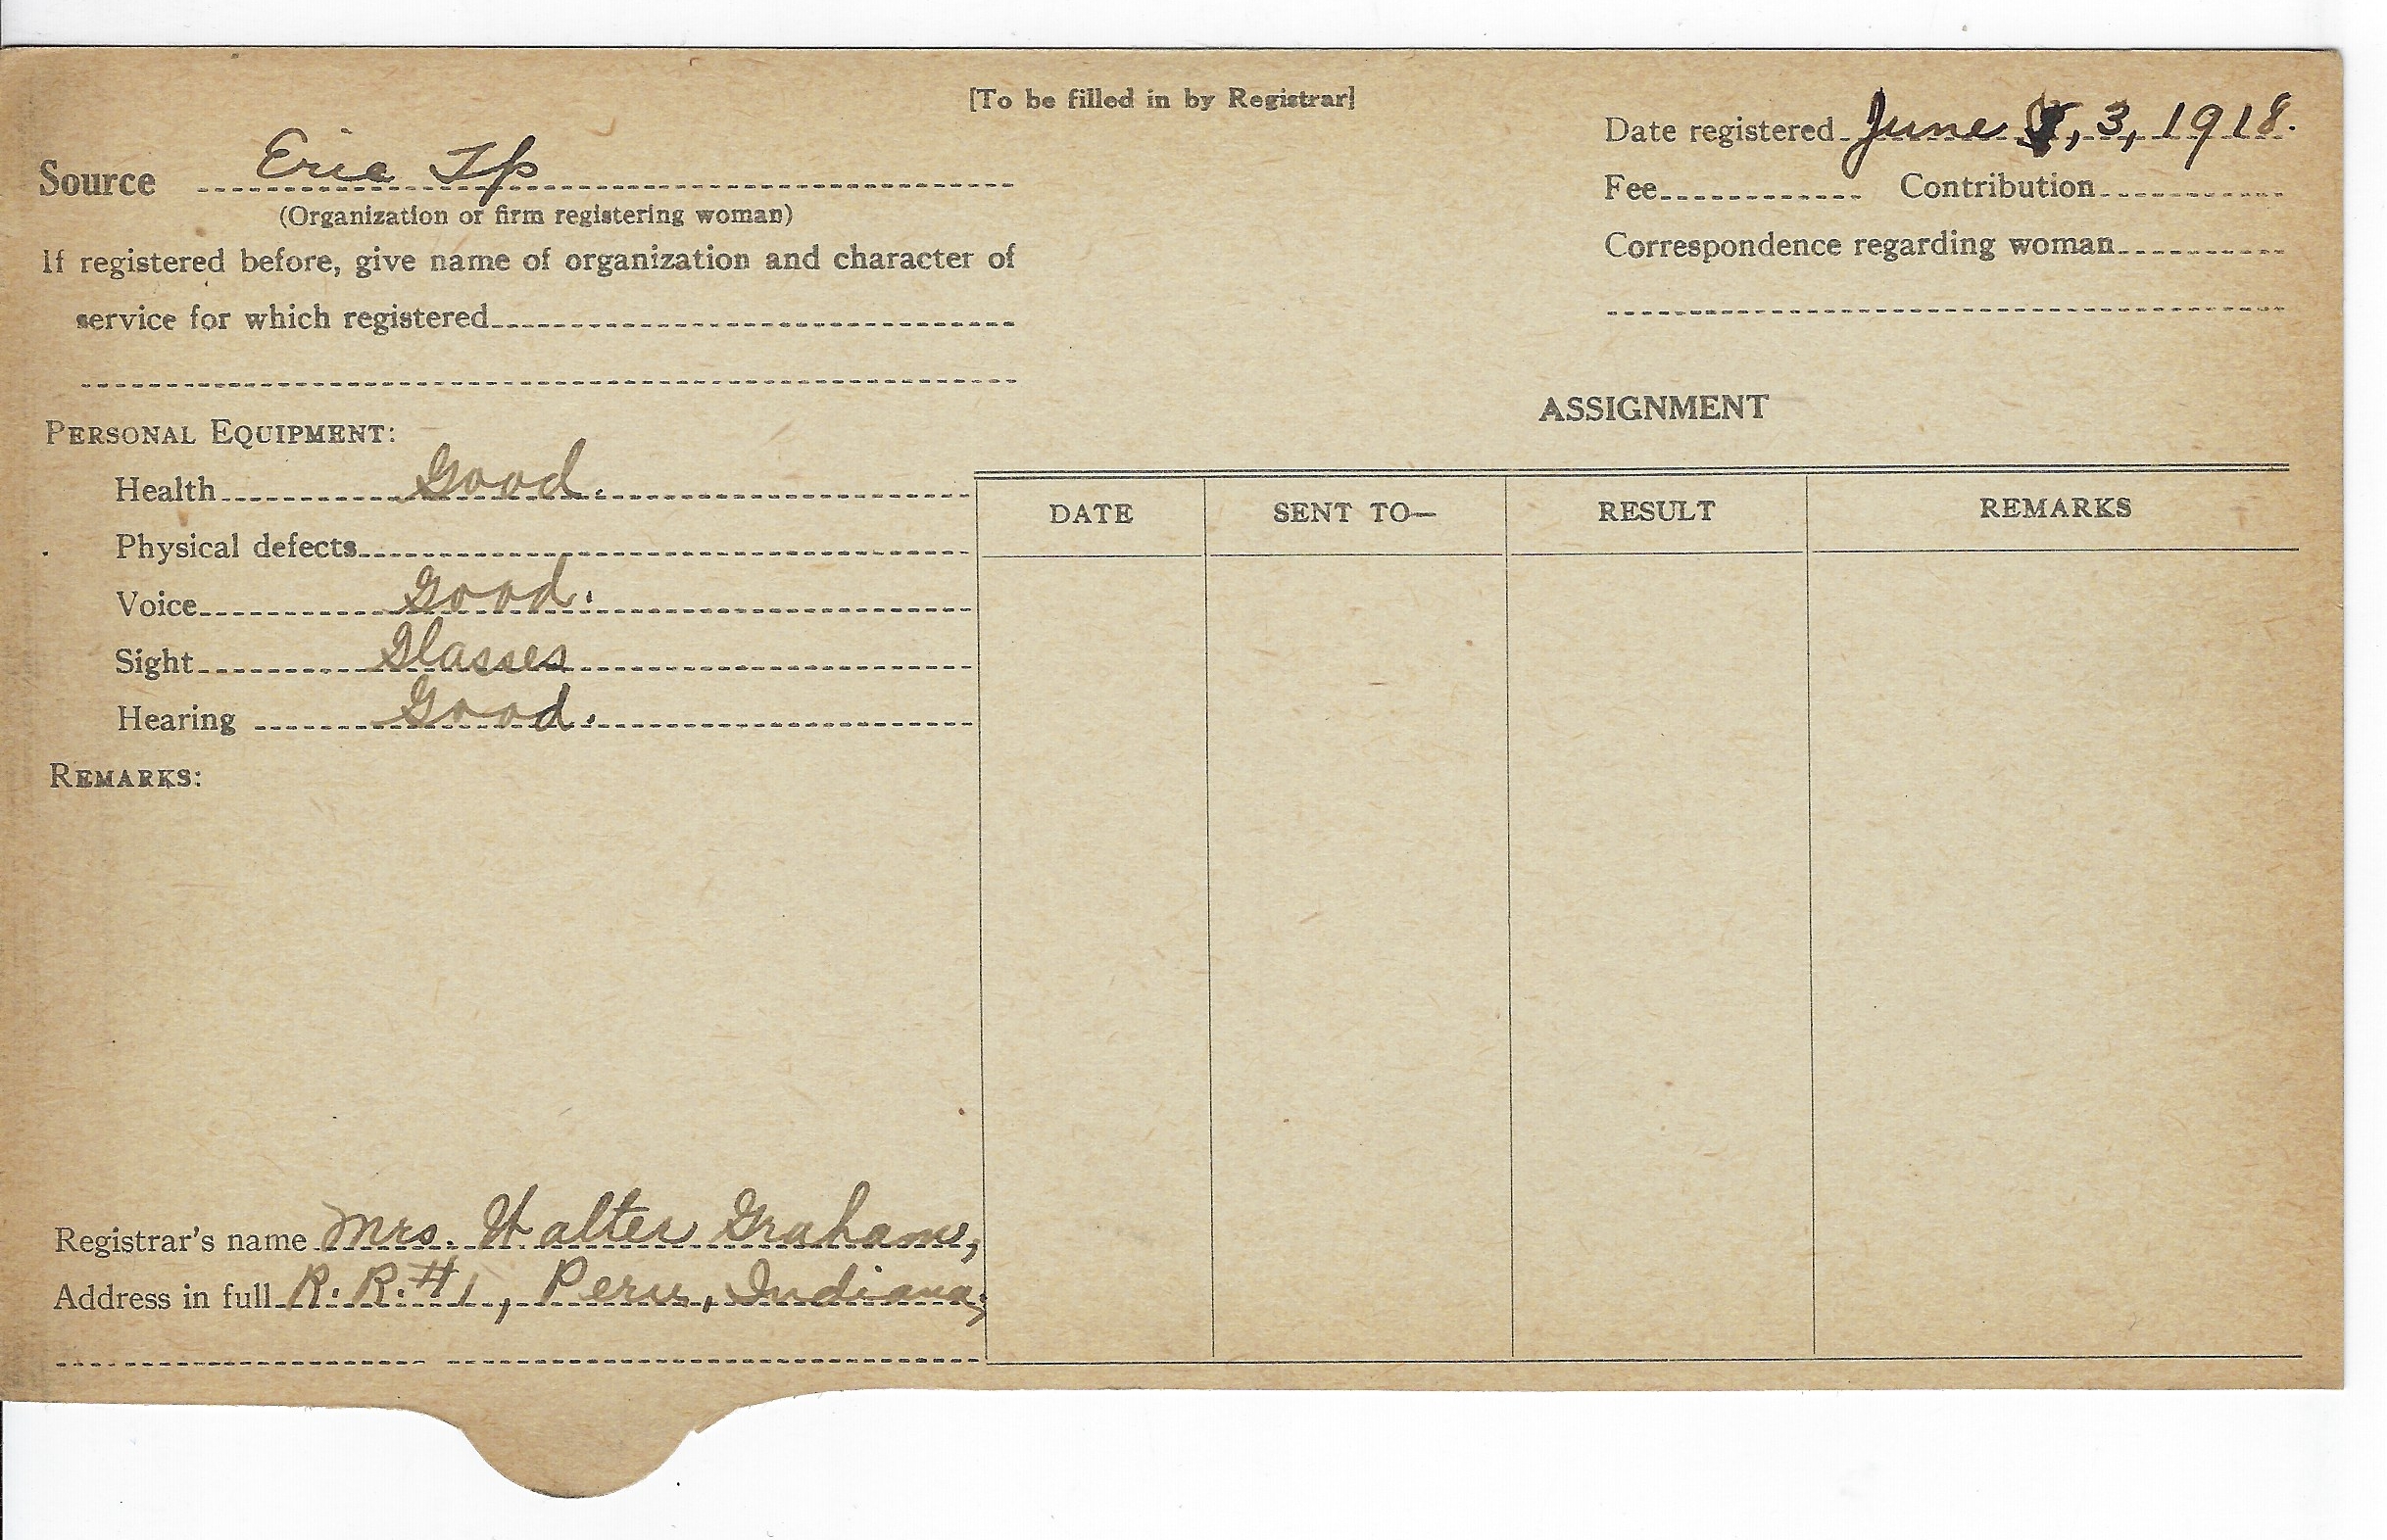 [To be filled in by Registrar]
Date registered June 3, 1918.
Source Erie Tp
Fee Contribution
(Organization or firm registering woman)
Correspondence regarding woman
If registered before, give name of organization and character of
service for which registered
ASSIGNMENT
PERSONAL EQUIPMENT:
Health Good.
DATE SENT TO— RESULT REMARKS
Physical defects
Voice Good.
Sight Glasses
Hearing Good.
REMARKS:
Registrar's name Mrs. Walter Graham,
Address in full R. R. #1, Peru, Indiana,